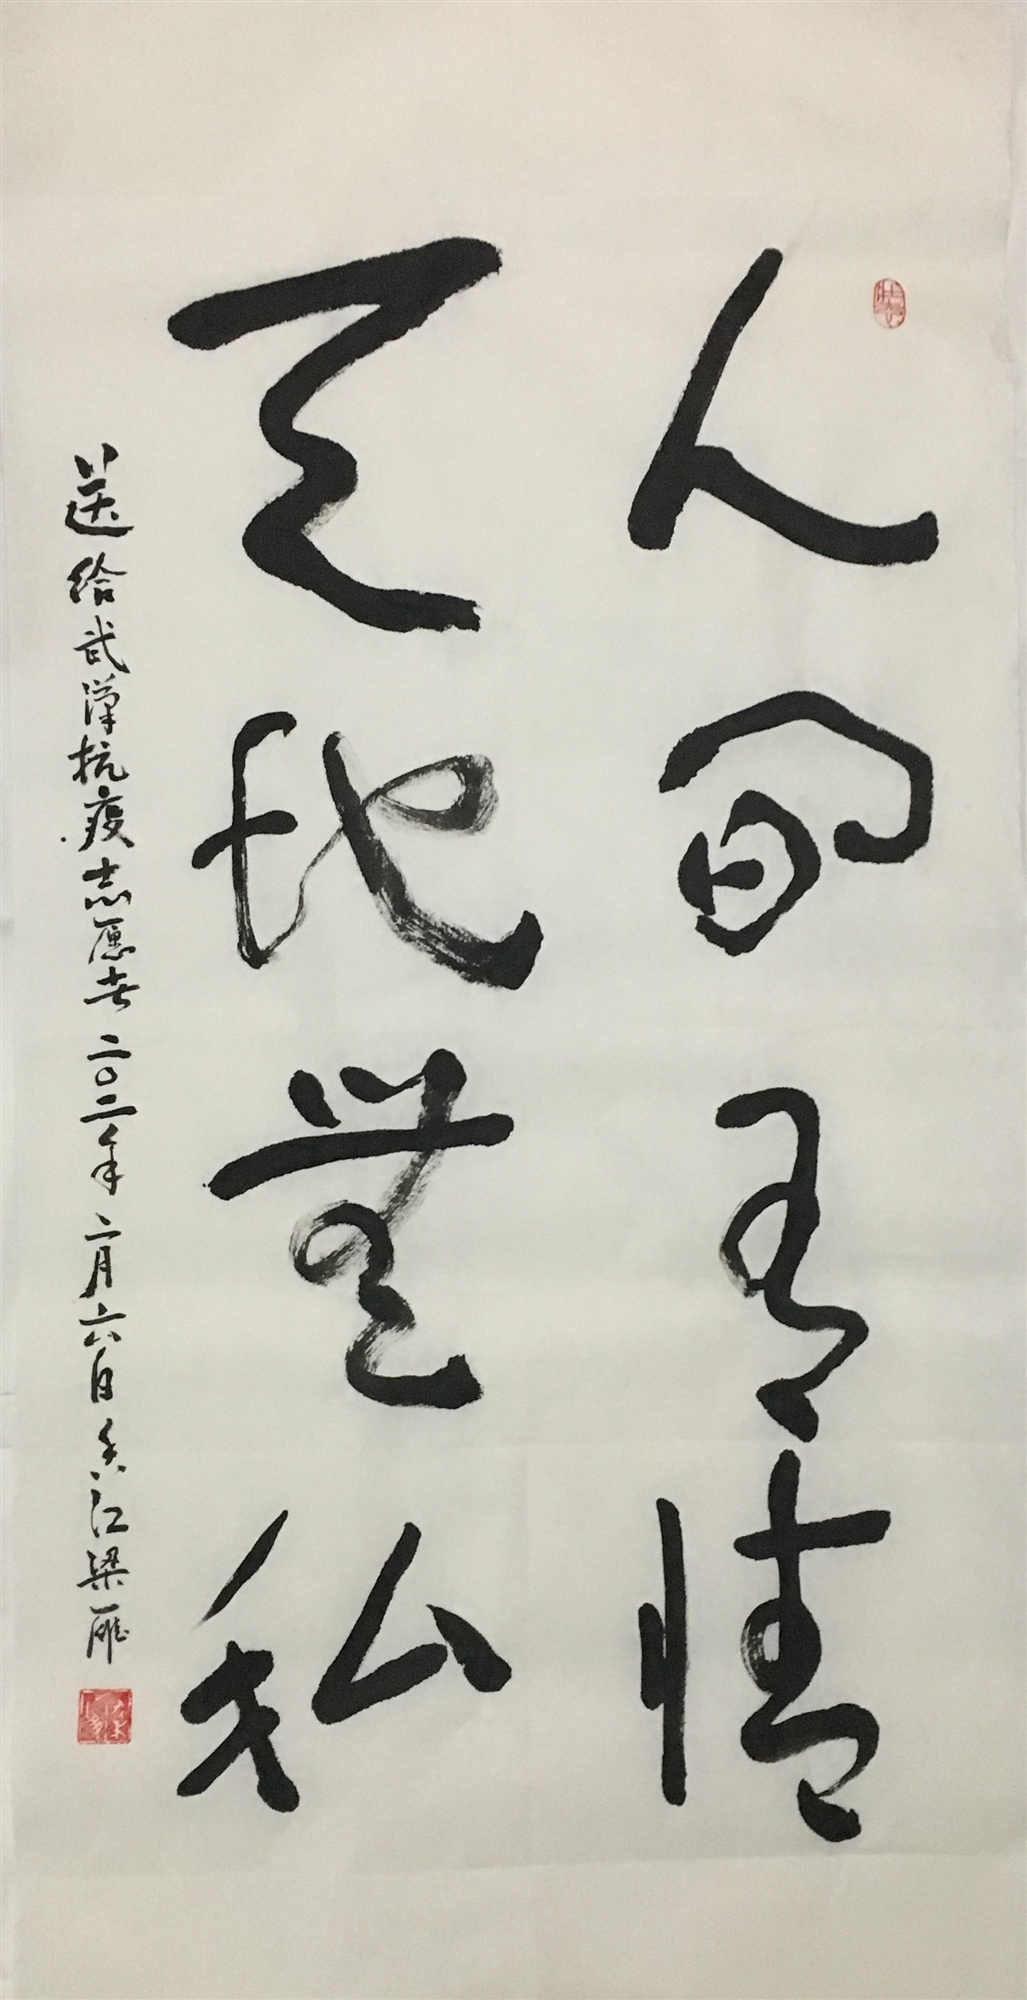 人間有情
天地無私
送给武漢抗疫志愿者二〇二年二月六日香江梁雁